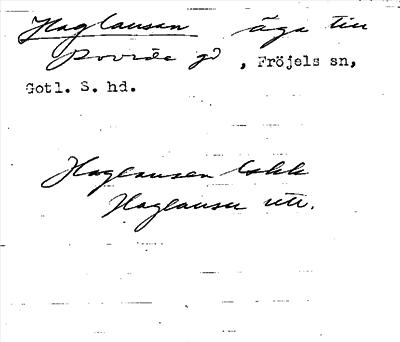 Haglausan äga till
Rovide gd, Fröjels sn,
Gotl. S. hd.
Haglausen bskk
Haglausu utt.